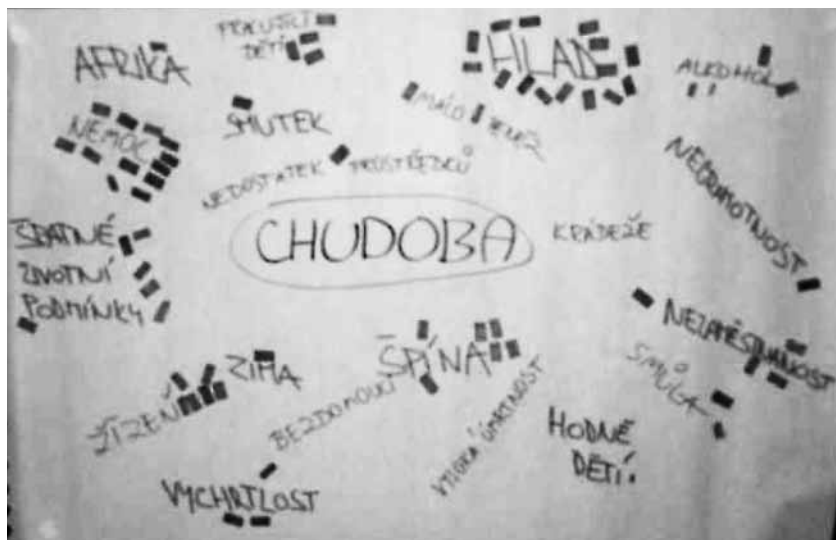 PRACUJÍCÍ
DĚTI
AFRIKA
HLAD
ALKOHOL
NEMOC
SMUTEK
MÁLO PENĚZ
NEDOSTATEK PROSTŘEDKŮ
NEGRAMOTNOST
ŠPATNÉ
ŽIVOTNÍ
PODMÍNKY
CHUDOBA
KRÁDEŽE
NEZAMĚSTNANOST
ŠPÍNA
ZIMA
SMŮLA
ŽÍZEŇ
BEZDOMOVCI
VYSOKÁ ÚMRTNOST
HODNĚ
DĚTÍ.
VYCHRTLOST